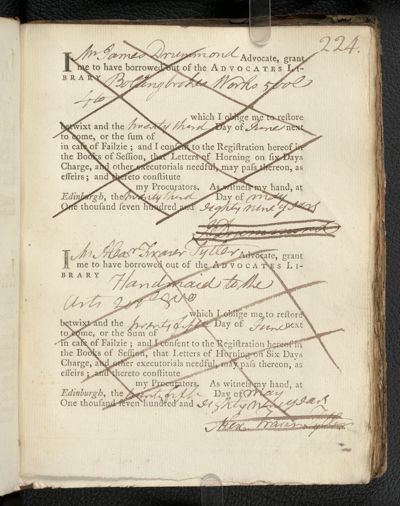 224.
I Mr James Drummond Advocate, grant
me to have borrowed out of the ADVOCATES LI-
BRARY Bolingbrokes Works 5 vols
4to
which I oblige me to reſtore
betwixt and the twenty third Day of June next
to come, or the ſum of
in caſe of Failzie; and I conſent to the Regiſtration hereof in
the Books of Seſſion, that Letters of Horning on ſix Days
Charge, and other executorials needful, may paſs thereon, as
effeirs; and thereto conſtitute
my Procurators. As witneſs my hand, at
Edinburgh, the twenty third Day of May
One thouſand ſeven hundred and eighty nine years
Drummond
I Mr Alexr Fraser Tytler Advocate, grant
me to have borrowed out of the ADVOCATES LI-
BRARY Handmaid to the
Arts 2 vols 8vo
which I oblige me to reſtore
betwixt and the twenty fifth Day of June next
to come, or the Sum of
in caſe of Failzie; and I conſent to the Regiſtration hereof in
the Books of Seſſion, that Letters of Horning on Six Days
Charge, and other executorials needful, may paſs thereon, as
effeirs; and thereto conſtitute
my Procurators. As witneſs my hand, at
Edinburgh, the Day of May
One thouſand ſeven hundred and eighty nine years
Alex Fraser Tytler